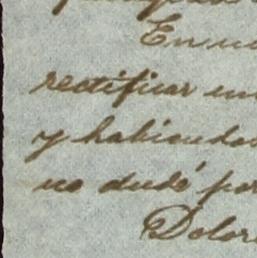 En u
rectificar un
y habiendo
no dudé por
Dolor